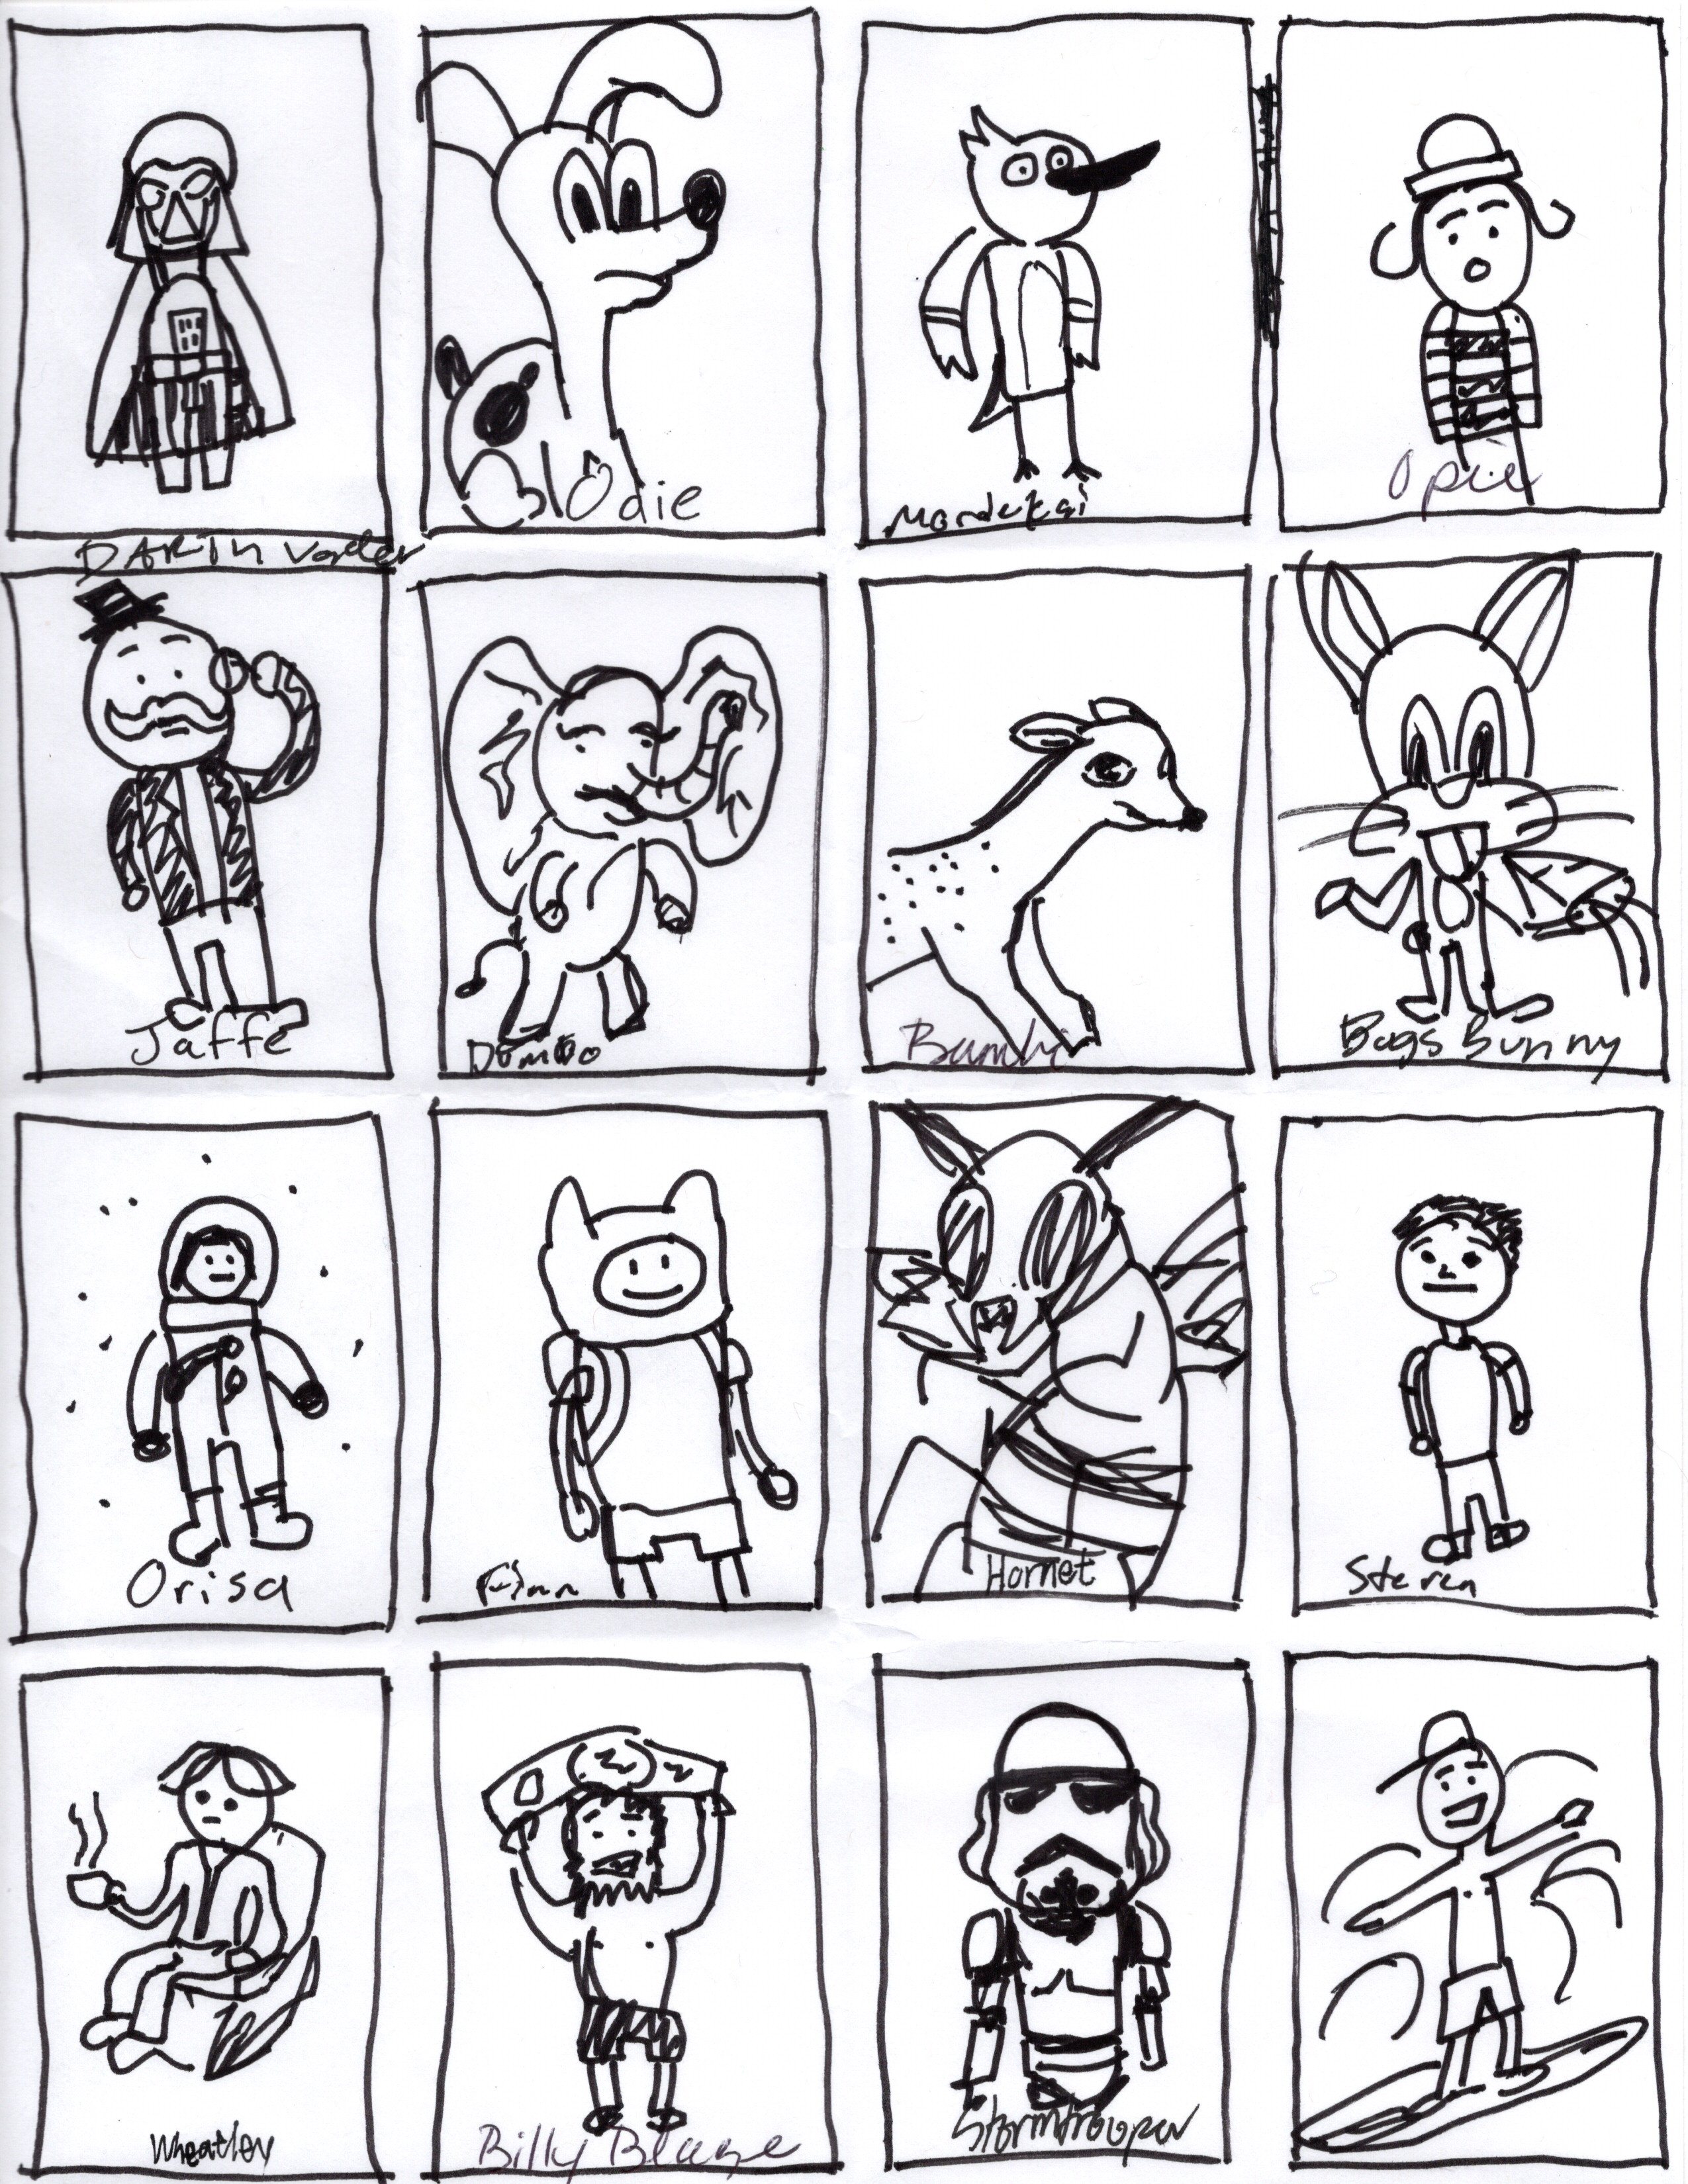 DARTH Vader
Odie
Mordekai
Opie
Jaffe
Dombo
Bambi
Bugs Bunny
Orisa
Finn
Hornet
Steven
Wheatley
Billy Blaze
Stormtrooper